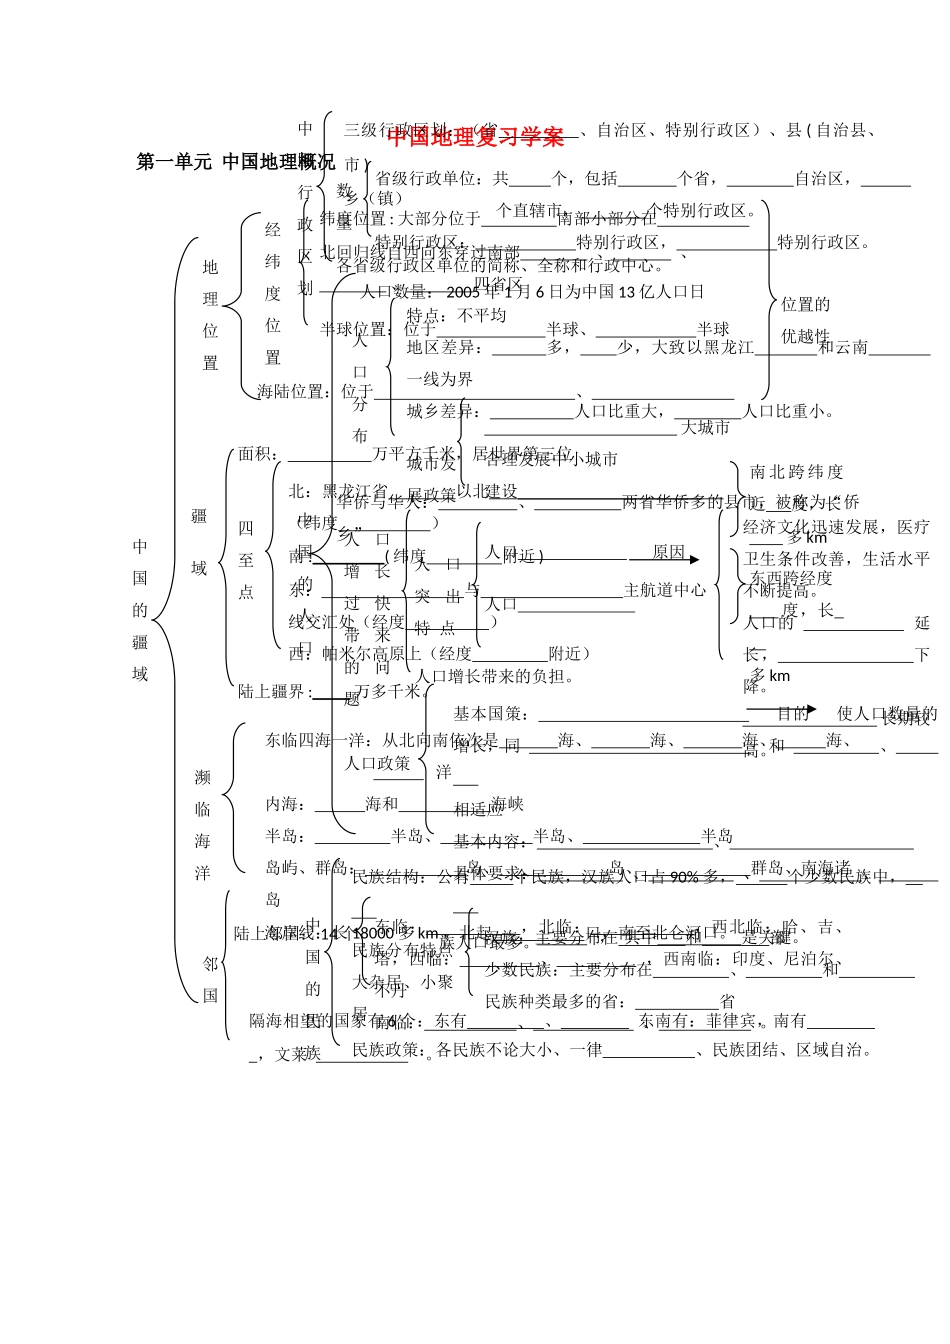 中国地理复习学案
第一单元 中国地理概况
中国的疆域
地理位置
经纬度位置
纬度位置：大部分位于_________南部小部分在___________
北回归线自西向东穿过南部_________、_______、
___________四省区
半球位置：位于_____________半球、____________半球
海陆位置：位于________________________、_________________
位置的
优越性
疆域
面积：__________万平方千米，居世界第三位
四至点
北：黑龙江省________以北
（纬度___________）
南：_________（纬度_________附近）
东：_________________与_________________主航道中心
线交汇处（经度__________）
西：帕米尔高原上（经度_________附近）
南北跨纬度
近___度，长
____多km
东西跨经度
____度，长_
__
多km
陆上疆界：_____万多千米。
濒临海洋
东临四海一洋：从北向南依次是_______海、_______海、_______海、_____海、
______洋
内海：______海和___________海峡
半岛：_________半岛、___________半岛、______________半岛
岛屿、群岛：____________岛、____________岛，____________、群岛、南海诸
岛
海岸线：长18000多km，北起________口，南至北仑河口。
邻国
陆上邻国：14个
东临：_______，北临：________、________西北临：哈、吉、
塔，西临：_________、_________，西南临：印度、尼泊尔、
不丹
南临：___________、___________、___________。
隔海相望的国家有6个：东有______、________ 东南有：菲律宾，南有________
_，文莱___________。
中国行政区划
三级行政区划：（省__________、自治区、特别行政区）、县(自治县、
市)
乡（镇）
数量
省级行政单位：共_____个，包括_______个省，________自治区，______
个直辖市，________个特别行政区。
特别行政区：_____________特别行政区，____________特别行政区。
各省级行政区单位的简称、全称和行政中心。
中国的人口
人口数量：2005年1月6日为中国13亿人口日
人口分布
特点：不平均
地区差异：______多，____少，大致以黑龙江_______和云南_______
一线为界
城乡差异：__________人口比重大，________人口比重小。
城市发
展政策
_______________________大城市
合理发展中小城市
建设_______________________
华侨与华人：_________、__________两省华侨多的县市，被称为“侨
乡”
人口增长过快带来的问题
人口突出特点
人口_______________
人口______________
原因
经济文化迅速发展，医疗
卫生条件改善，生活水平
不断提高。
人口的_________延
长，________________下
降。
________________长期较
高。
人口增长带来的负担。
人口政策
基本国策：_________________________
目的
使人口数量的
增长，同______________________和___________、_____
___
相适应
基本内容：_____________________、______________________
具体要求：_________________________
中国的民族
民族结构：公有_____个民族，汉族人口占90%多，______个少数民族中，__
___
族人口最多。
民族分布特点
大杂居、小聚
居
汉族：主要分布在
少数民族：主要分布在_________、_________和_________
民族种类最多的省：__________省
民族政策：各民族不论大小、一律___________、民族团结、区域自治。